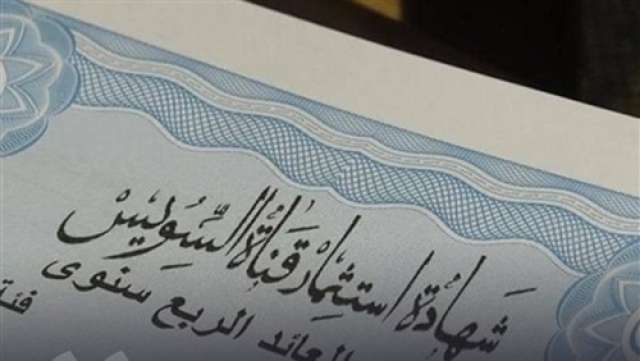 شهادة استثمار قناة السويس
العائد الربع سنوى
فئة